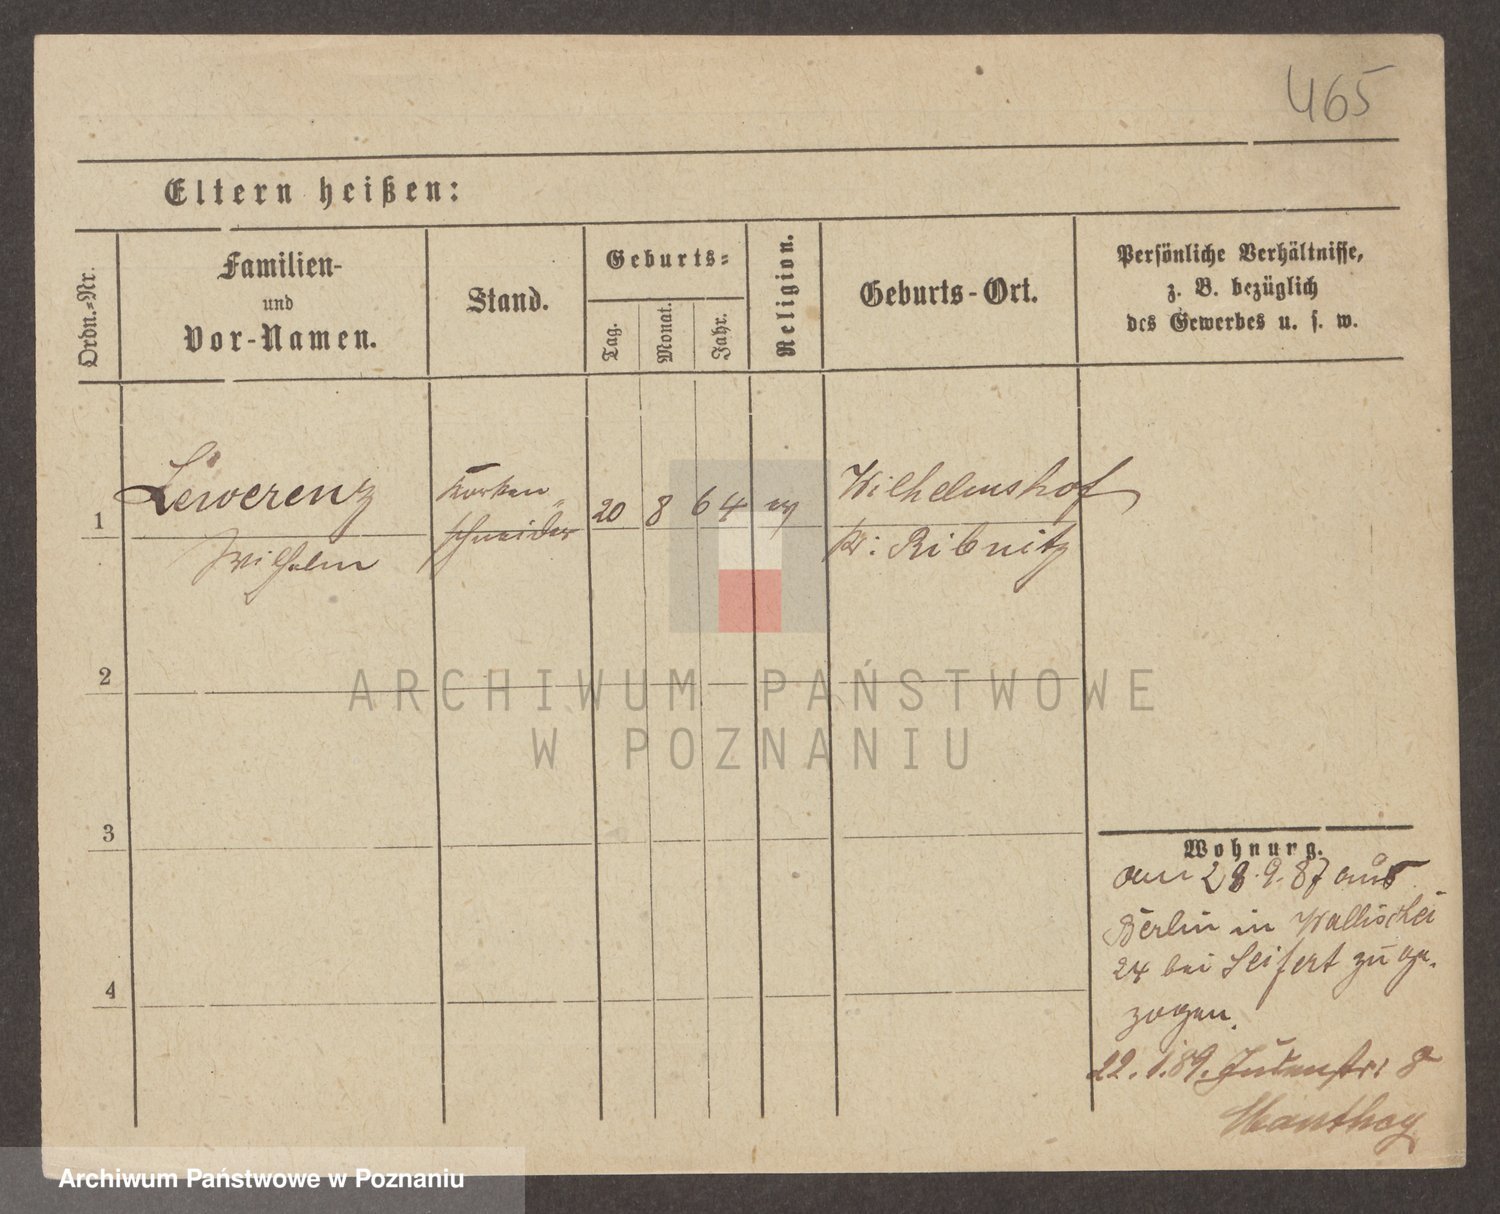 465
Eltern heißen:
Ordn.-Nr.
Familien-
und
Vor-Namen.
Stand.
Geburts-
Tag.
Monat.
Jahr.
Religion.
Geburts-Ort.
Persönliche Verhältnisse,
z. B. bezüglich
des Gewerbes u. s. w.
1
Lewerenz
Wilhelm
Korken-
schneider
20
8
64
ev
Wilhelmshof
Kr: Ribnitz
2
ARCHIWUM PAŃSTWOWE
W POZNANIU
3
Wohnung.
am 28.9.87 aus
Berlin in Wallischei
24 bei Seifert zuge-
zogen.
4
22.1.89. Judenstr: 8
Manthey
Archiwum Państwowe w Poznaniu